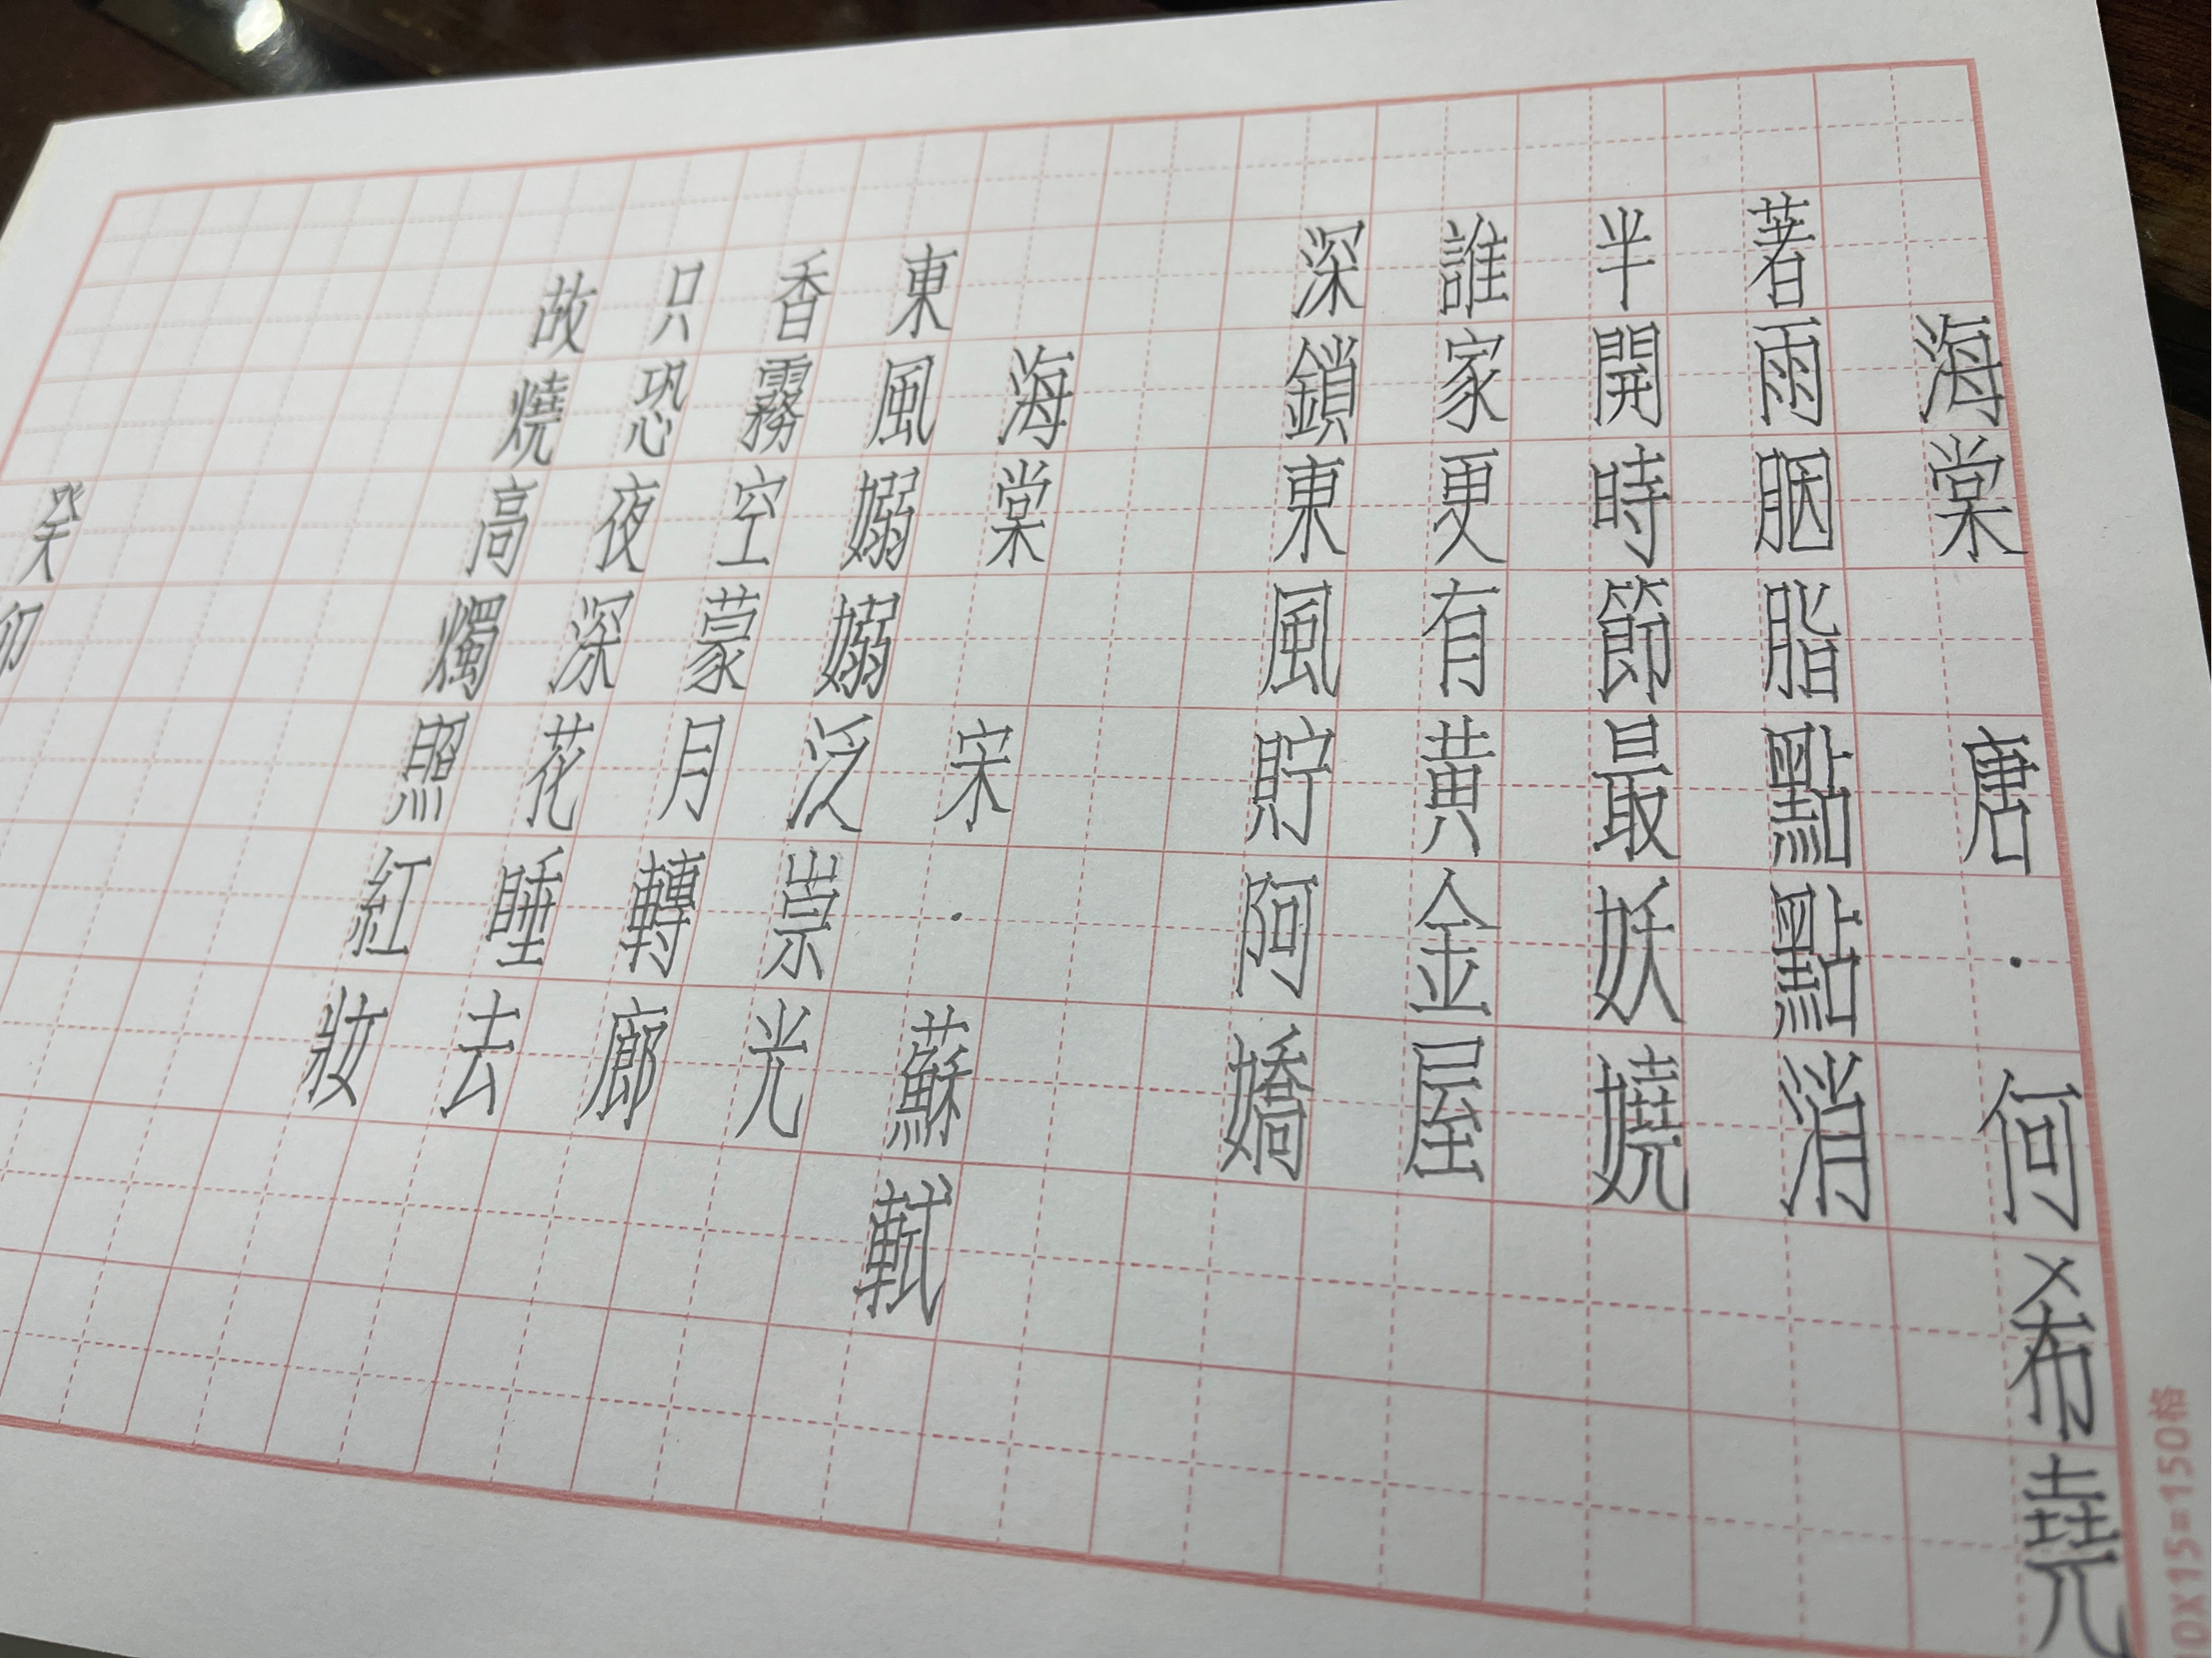 海棠 唐·何希堯
著雨胭脂點點消
半開時節最妖嬈
誰家更有黃金屋
深鎖東風貯阿嬌
海棠 宋·蘇軾
東風嫋嫋泛崇光
香霧空蒙月轉廊
只恐夜深花睡去
故燒高燭照紅妝
癸卯
0X15=150格